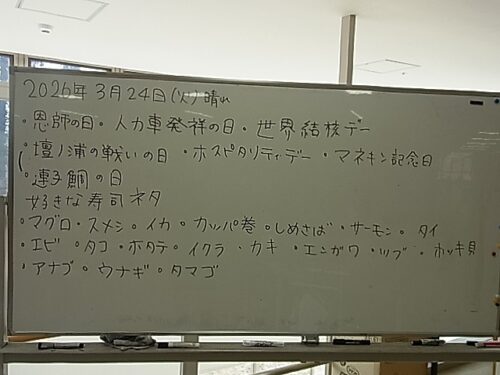 2026年 3月24日(火)晴れ
・恩師の日・人力車発祥の日・世界結核デー
・壇ノ浦の戦いの日・ホスピタリティデー・マネキン記念日
・連子鯛の日
好きな寿司ネタ
・マグロ・スメシ・イカ・カッパ巻・しめさば・サーモン・タイ
・エビ・タコ・ホタテ・イクラ・カキ・エンガワ・ツブ・ホッキ貝
・アナゴ・ウナギ・タマゴ